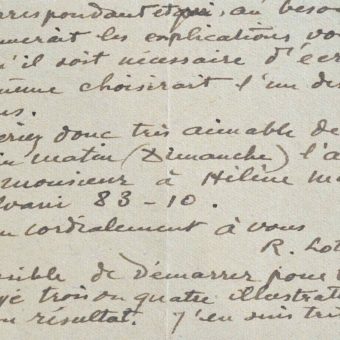 respondant et qui, au beso
nerait les explications vo
u'il soit nécessaire d'écr
ême choisirait l'un des
s.
eriez donc très aimable de
n matin (Dimanche) l'a
monsieur à Hélène M
lvani 83-10.
n cordialement à vous
R. Lot
sible de démarrer pour
yé trois ou quatre illustrat
n résultat. J'en suis tri